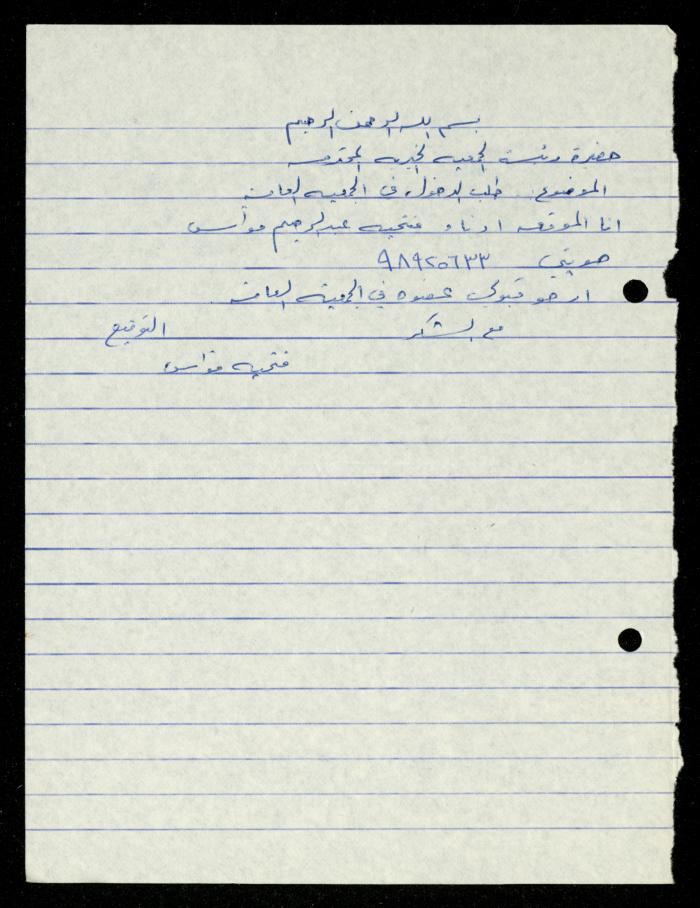 بسم الله الرحمن الرحيم
حضرة رئيسة الجمعيه الخيريه المحترمه
الموضوع: طلب الدخول في الجمعيه العامه
انا الموقعه ادناه فتحيه عبدالرحيم مواسي
هويتي ٩٨٩٢٥٦٣٣
ارجو قبولي عضوه في الجمعية العامه
مع الشكر التوقيع
فتحيه مواسي